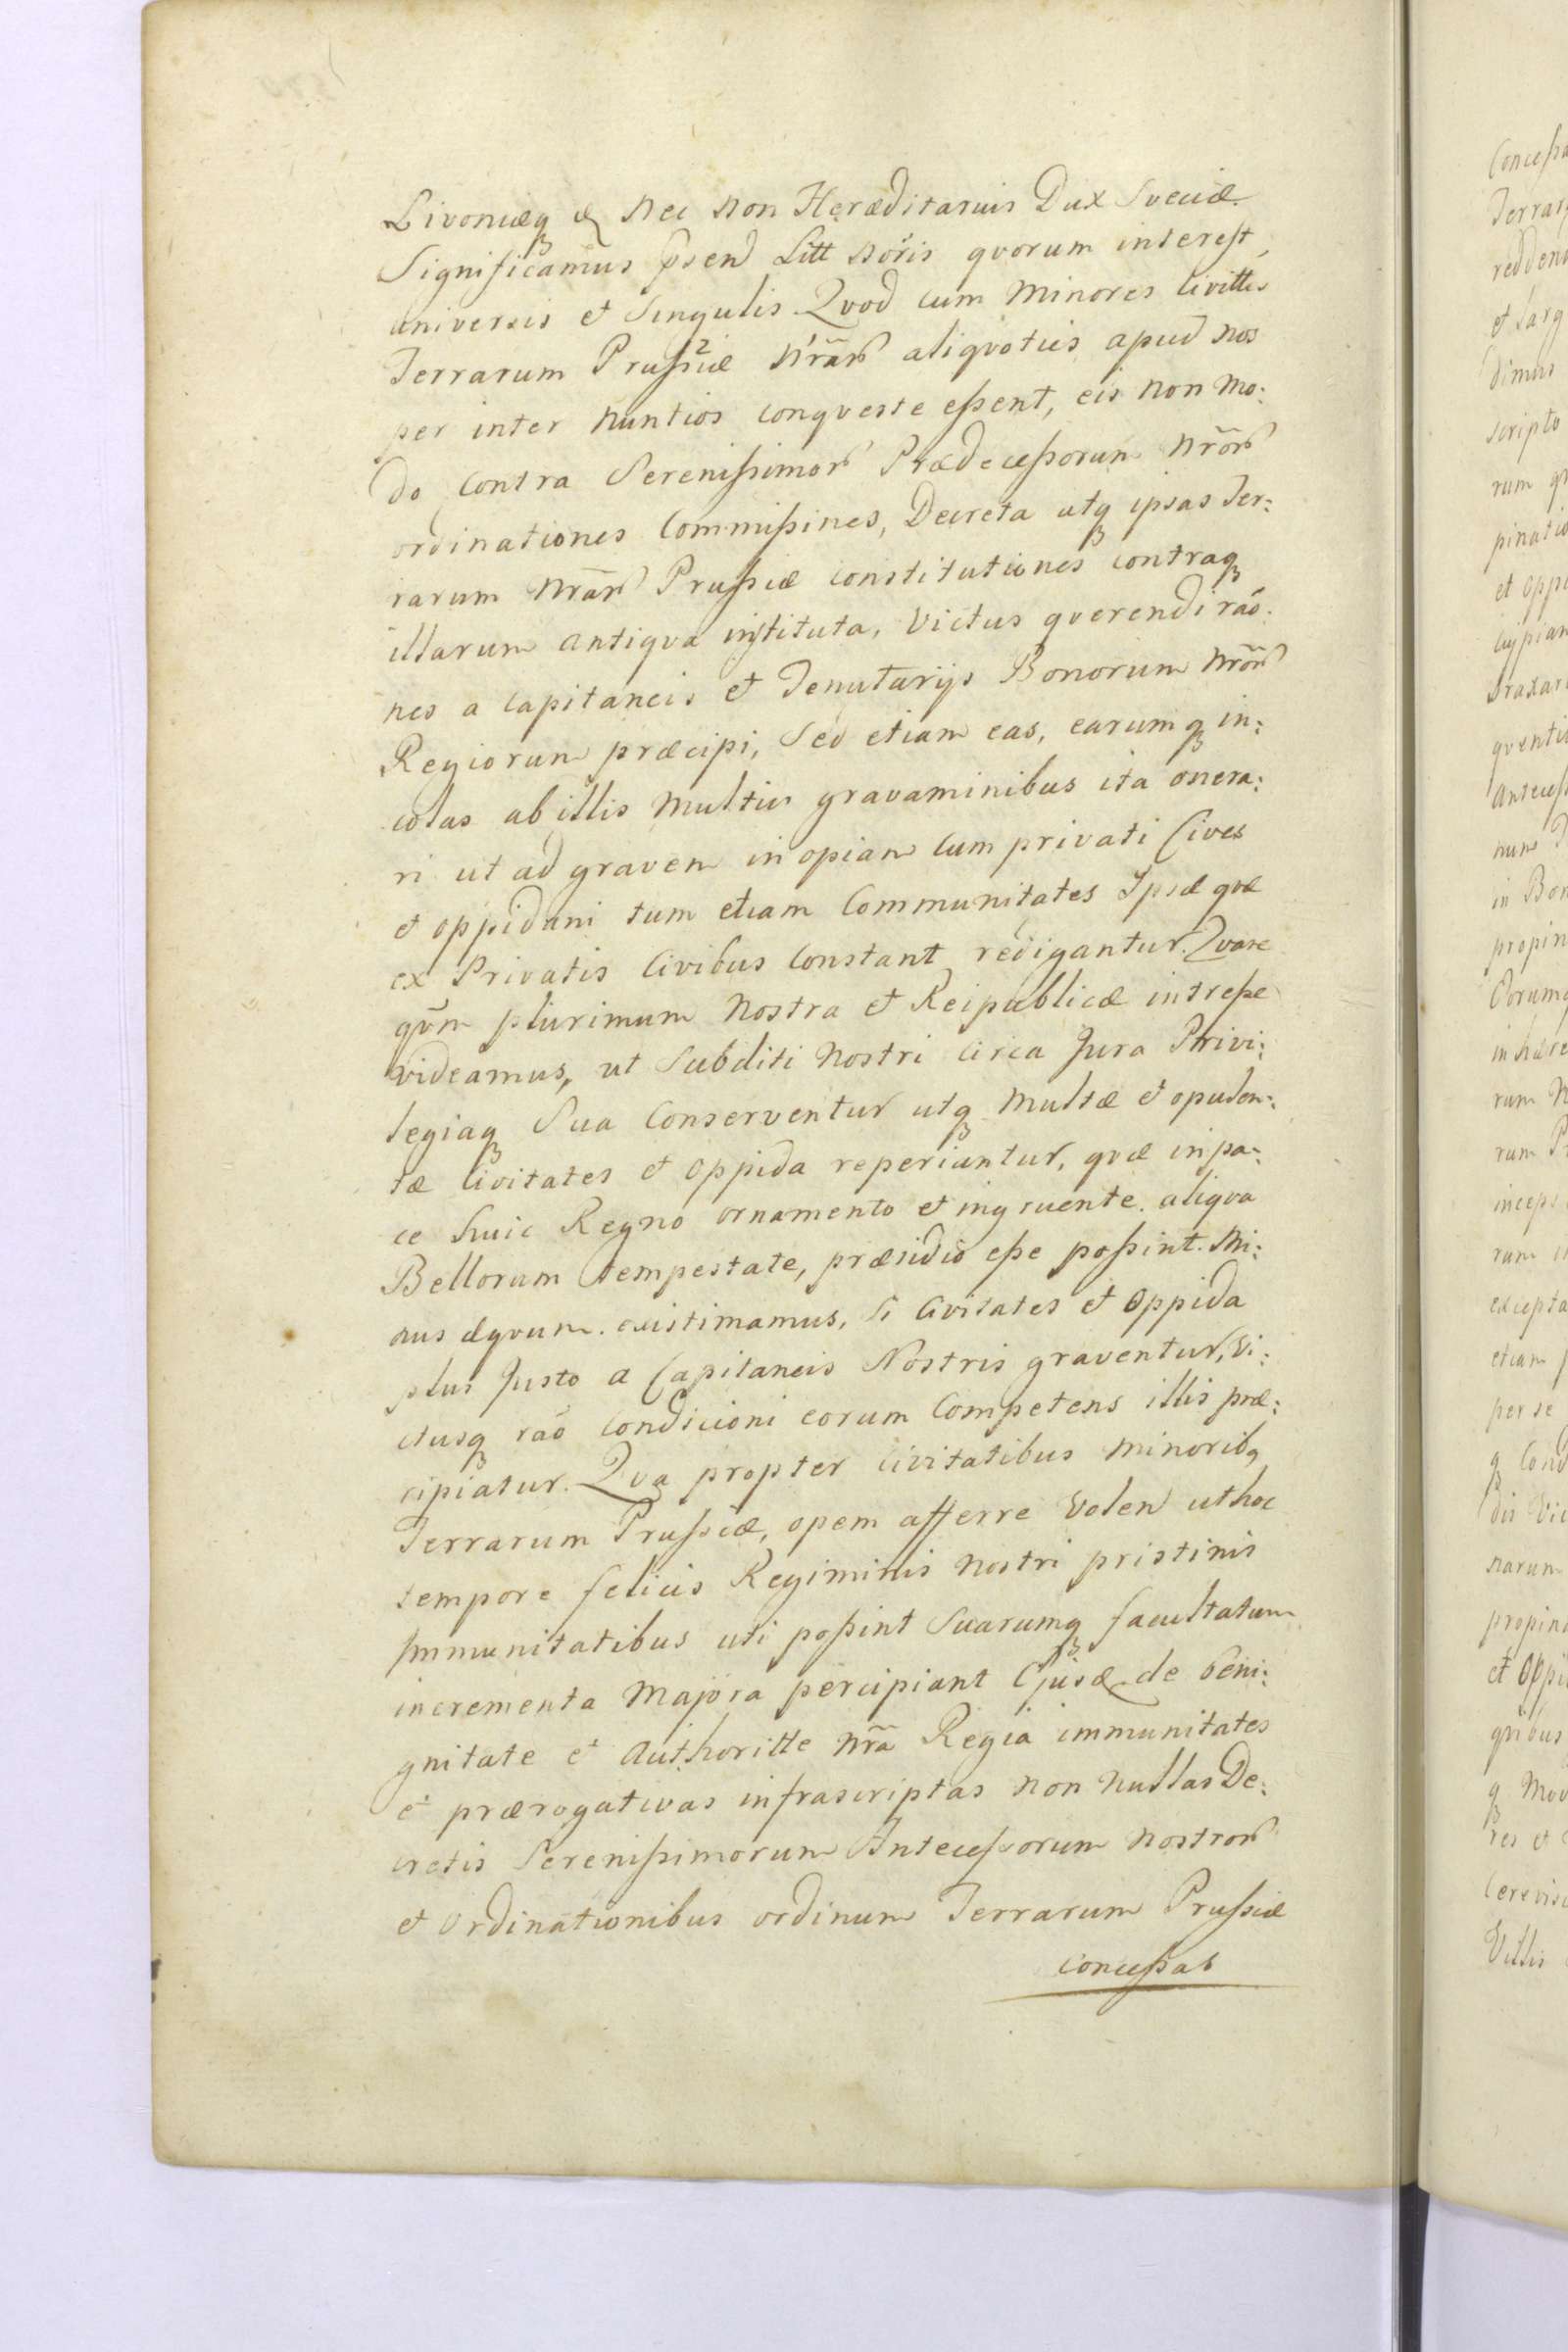 Livoniæq & Nec Non Hæreditarius Dux Sveciæ
Significamus p̃send Litt Nõris qvorum interest,
universis et Singulis Qvod cum Minores Civittes
Terrarum Prußiæ Nr̃ar̃ aliqvoties apud Nos
per inter Nuntios conqveste eßent, eis Non Mo:
do contra Serenißimor̃ Prædeceßorum Nr̃or̃
ordinationes Commißines, Decreta atq ipsas Ter:
rarum Nr̃ar̃ Prußiæ constitutiones contraq
illarum antiqva instituta, Victus qverendi rão:
nes a Capitaneis et Tenutarijs Bonorum Nr̃or̃
Regiorum præcipi, Sed etiam eas, earumq in:
colas ab illis Multis gravaminibus ita onera:
ri ut ad gravem inopiam cum privati Cives
et oppidani tum etiam Communitates Ipsæ qvæ
ex Privatis Civibus Constant redigantur. Qvare
qṽm plurimum Nostra et Reipublicæ intreße
videamus, ut Subditi Nostri circa Jura Privi:
legiaq Sua Conserventur utq Multæ et opulen:
tæ Civitates et oppida reperiantur, qvæ in pa:
ce huic Regno ornamento et ingruente aliqva
Bellorum tempestate, præsidio eße poßint. Mi:
nus æqvum existimamus, Si Civitates et oppida
plus Justo a Capitaneis Nostris graventur, Vi:
ctusq rão Condicioni eorum Competens illis præ:
cipiatur. Qva propter Civitatibus Minorib9
Terrarum Prußiæ, opem afferre Volen ut hoc
tempore felicis Regiminis Nostri pristinis
Immunitatibus uti poßint Suarumq facultatum
incrementa Majora percipiant Ejusd de beni:
gnitate et Authoritte Nr̃a Regia immunitates
et prærogativas infrascriptas Non Nullas De:
cretis Serenißimorum Anteceßorum Nostror̃
et ordinationibus ordinum Terrarum Prußiæ
conceßas